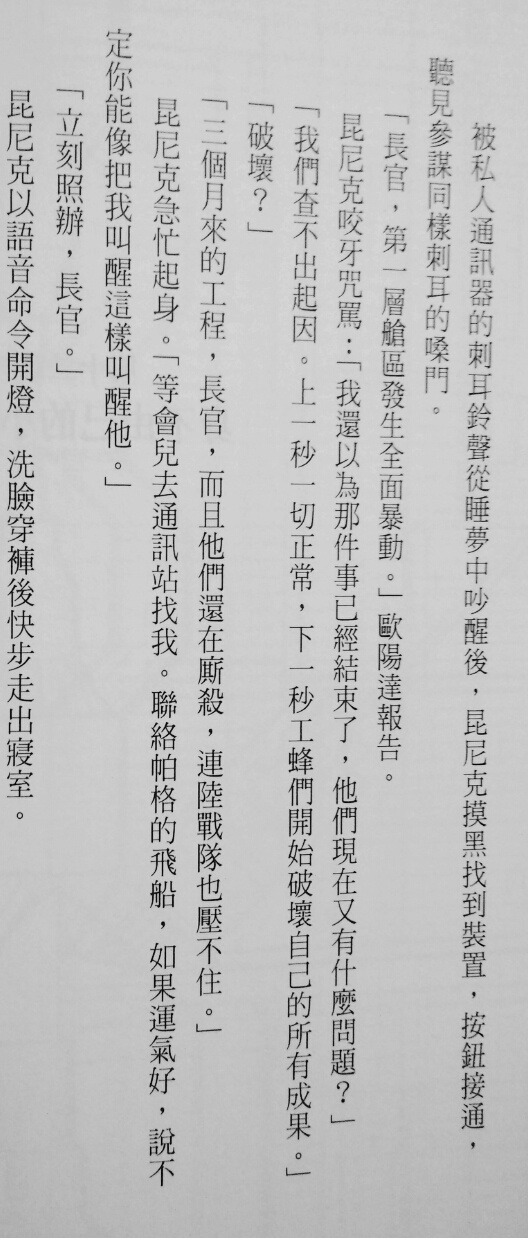 被私人通訊器的刺耳鈴聲從睡夢中吵醒後，昆尼克摸黑找到裝置，按鈕接通，
聽見參謀同樣刺耳的嗓門。
「長官，第一層艙區發生全面暴動。」歐陽達報告。
昆尼克咬牙咒罵：「我還以為那件事已經結束了，他們現在又有什麼問題？」
「我們查不出起因。上一秒一切正常，下一秒工蜂們開始破壞自己的所有成果。」
「破壞？」
「三個月來的工程，長官，而且他們還在廝殺，連陸戰隊也壓不住。」
昆尼克急忙起身。「等會兒去通訊站找我。聯絡帕格的飛船，如果運氣好，說不
定你能像把我叫醒這樣叫醒他。」
「立刻照辦，長官。」
昆尼克以語音命令開燈，洗臉穿褲後快步走出寢室。